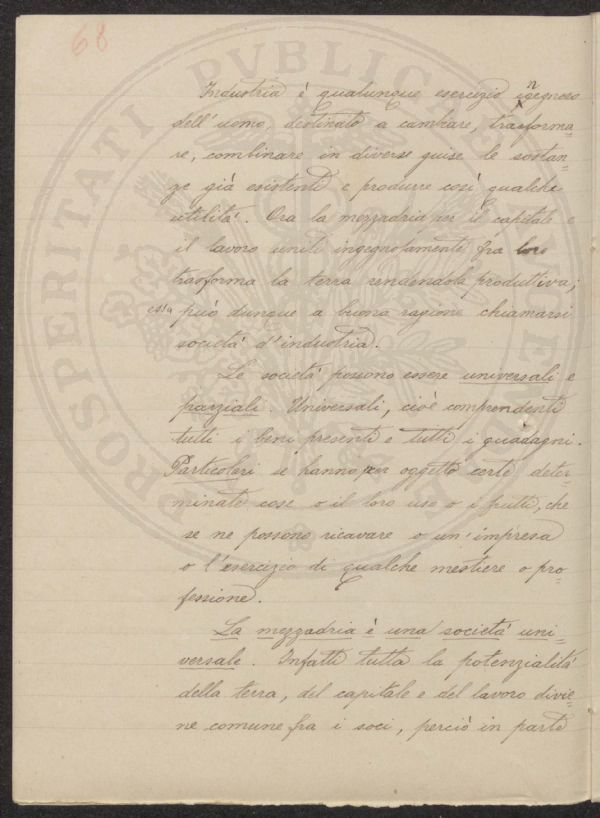 68
Industria è qualunque esercizio ingegnoso
dell'uomo, destinato a cambiare, trasforma-
re, combinare in diverse guise le sostan-
ze già esistenti e produrre così qualche
utilità. Ora la mezzadria per il capitale e
il lavoro uniti ingegnosamente fra loro
trasforma la terra rendendola produttiva;
essa può dunque a buona ragione chiamarsi
società d'industria.
Le società possono essere universali e
parziali. Universali, cioè comprendenti
tutti i beni presenti e tutti i guadagni.
Particolari se hanno per oggetto certe deter-
minate cose o il loro uso o i frutti, che
se ne possono ricavare o un'impresa
o l'esercizio di qualche mestiere o pro-
fessione.
La mezzadria è una società uni-
versale. Infatti tutta la potenzialità
della terra, del capitale e del lavoro divie-
ne comune fra i soci, perciò in parte
PROSPERITATI PVBLICAE